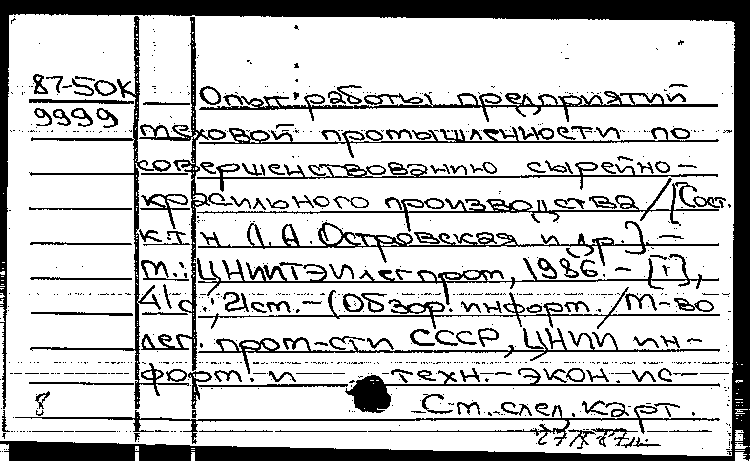 87-50К
9999
Опыт работы предприятий
меховой промышленности по
совершенствованию сырейно-
красильного производства / [Сост.
к.т.н Л.А. Островская и др.] -
М.: ЦНИИТЭИлегпром, 1986. - [1],
41 с.; 21 см. - (Обзор. информ. / М-во
лег. пром-сти СССР, ЦНИИ ин-
форм. и техн.-экон. ис-
8
См. след. карт.